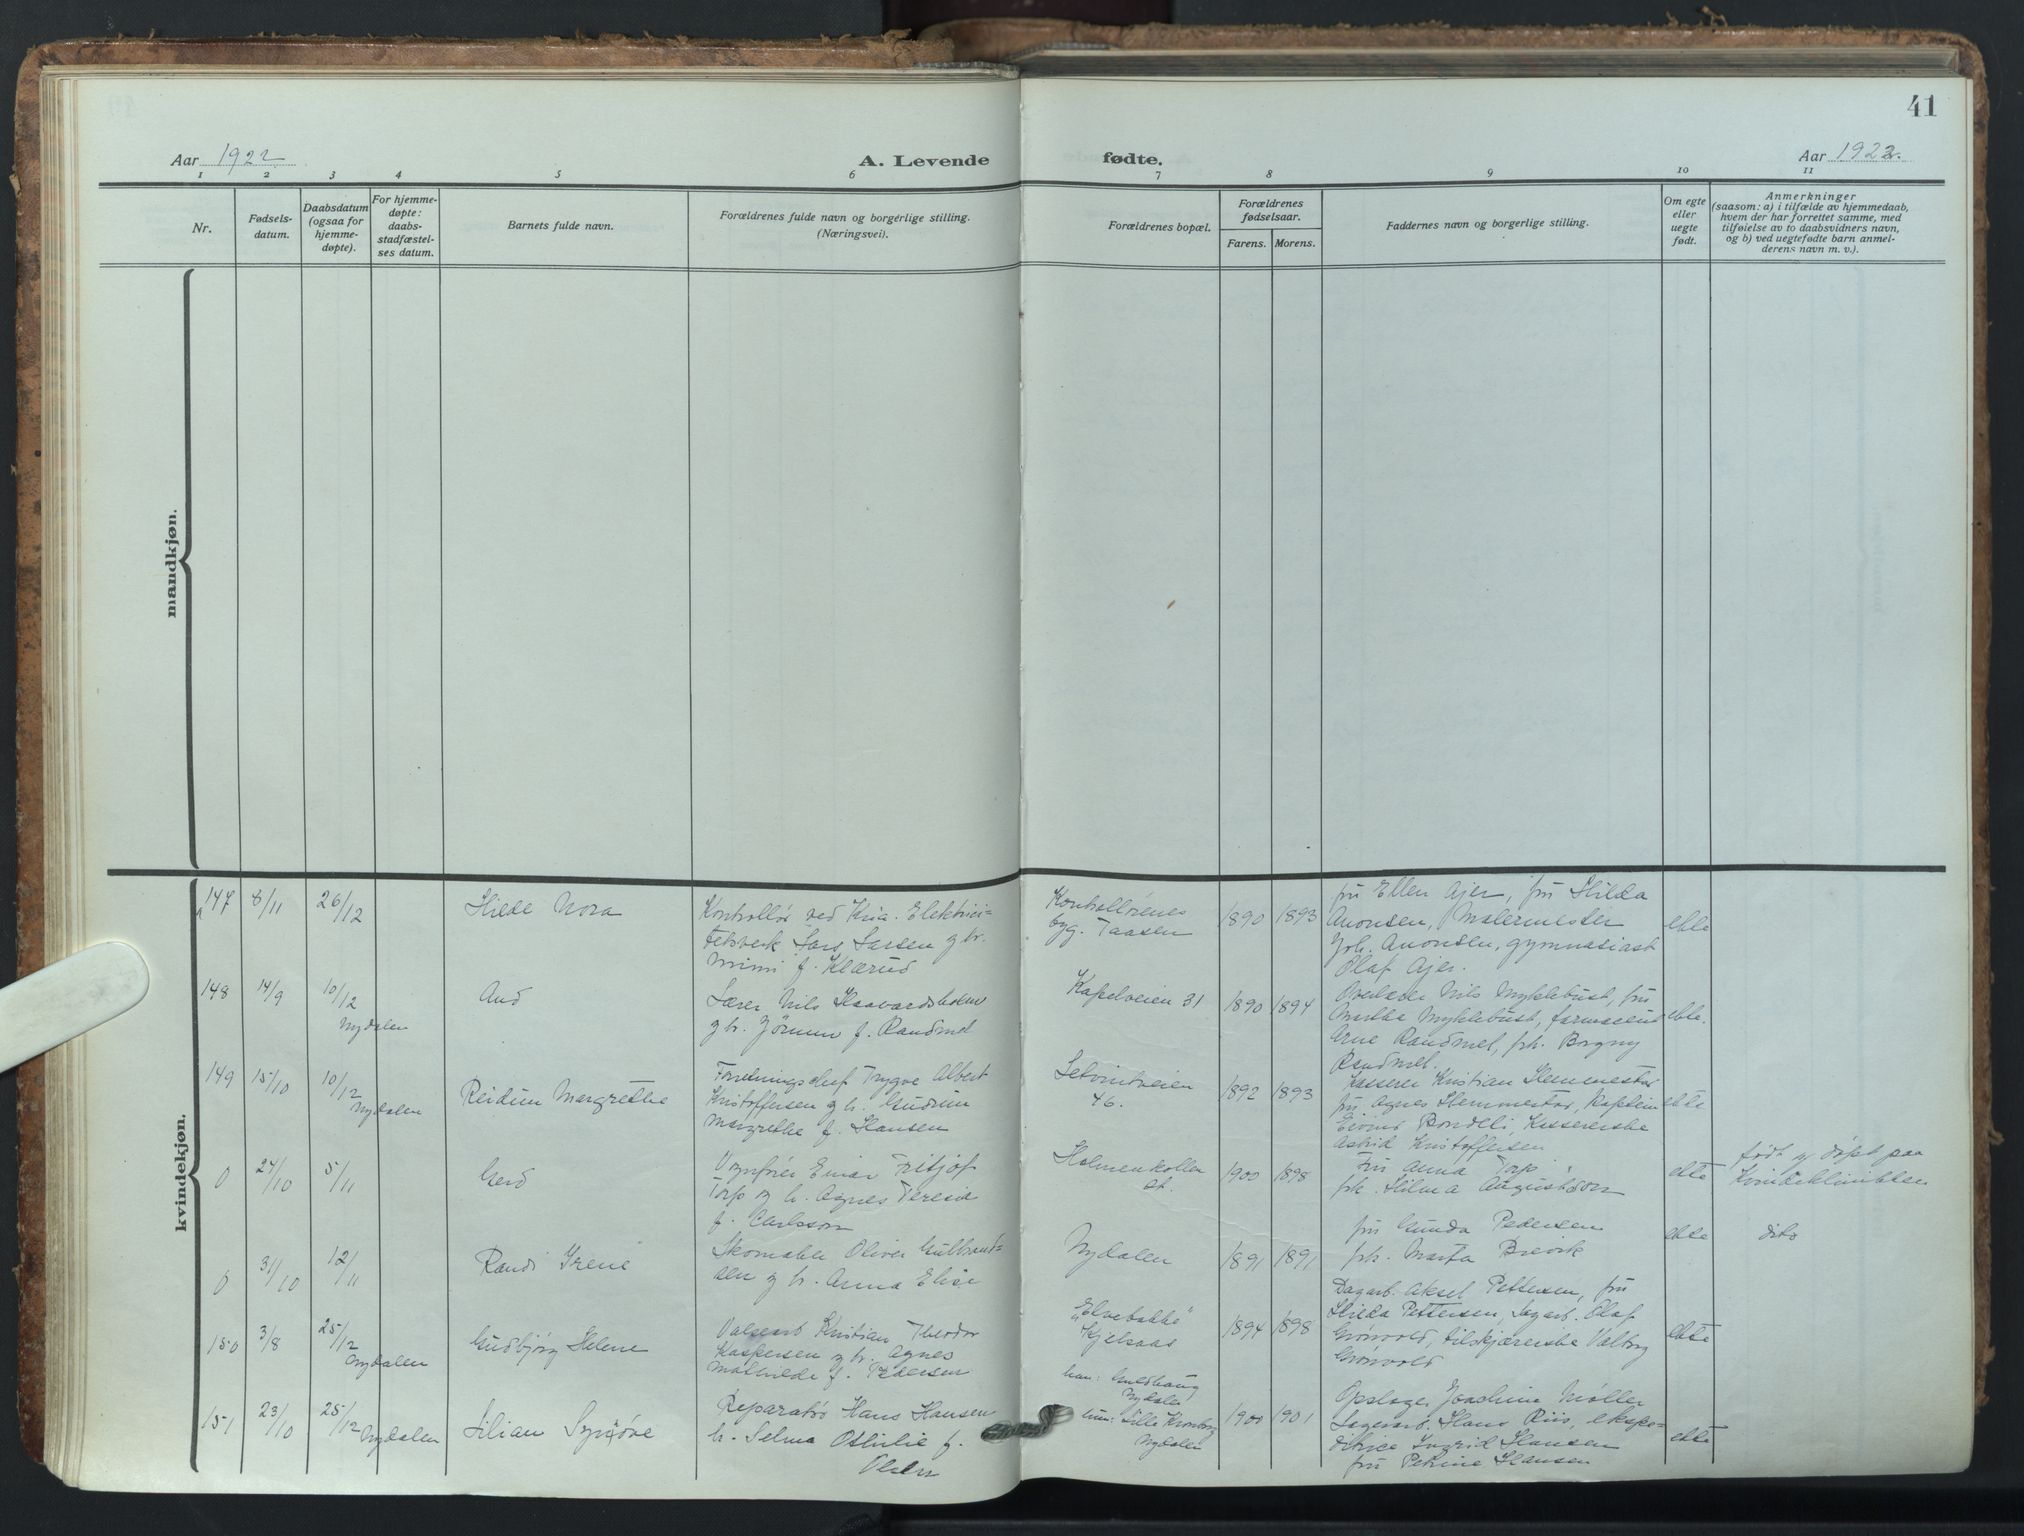 41
Aar 1922
A. Levende
fødte.
Aar 1922.
1 2 3 4 5 6 7 8 9 10 11
Nr.
Fødsels-
datum.
Daabsdatum
(ogsaa for
hjemme-
døpte).
For hjemme-
døpte:
daabs-
stadfæstel-
ses datum.
Barnets fulde navn.
Forældrenes fulde navn og borgerlige stilling.
(Næringsvei).
Forældrenes bopæl.
Forældrenes
fødselsaar.
Farens. Morens.
Faddernes navn og borgerlige stilling.
Om egte
eller
uegte
født.
Anmerkninger
(saasom: a) i tilfælde av hjemmedaab,
hvem der har forrettet samme, med
tilføielse av to daabsvidners navn,
og b) ved uegtefødte barn anmel-
derens navn m. v.).
mandkjøn.
kvindekjøn.
147 8/11 26/12
Hilde Nora
Kontrollør ved Kria. Elektrici-
tetsverk Lars Larsen og h.
Mimi f. Klærud
Kontrollørenes
byg. Taasen
1890 1893
fru Ellen Ajer, fru Hilda
Anonsen, Malermester
Joh. Anonsen, gymnasiast
Olaf Ajer.
ekte
148 14/9 10/12
Nydalen
Aud
Lærer Nils Haavardsholm
og h. Jørunn f. Randmel
Kapelveien 31
1890 1894
Overlærer Nils Myklebust, fru
Martha Myklebust, farmaceut
Arne Randmel, frk. Borgny
Randmel.
ekte.
149 15/10 10/12
Nydalen
Reidun Margrethe
Forretningschef Trygve Albert
Kristoffersen og h. Gudrun
Margrethe f. Hansen
46.
1892 1893
Kasserer Kristian Hemmestad
fru Agnes Hemmestad, Kaptein
Eivind Bondeli, Kassererske
Astrid Kristoffersen
ekte
0 24/10 5/11
Gerd
Vognfører Einar Fritjof
Torp og h. Agnes Teresia
f. Carlsson
Holmenkollen
st.
1900 1898
Fru Anna Torp
frk. Hilma Augustsson
ekte
født og døpt paa
Kvindeklinikken
0 31/10 12/11
Randi Irene
Skomaker Oliver Gulbrand-
sen og h. Anna Elise
Nydalen
1891 1891
fru Gunda Pedersen
frk. Marta Brevik
ekte
dito
150 3/8 25/12
Nydalen
Gudbjørg Helene
Valsearb Kristian Theodor
Kaspersen og h. Agnes
Mathilde f. Pedersen
"Elvebakke"
Kjelsaas
1894 1898
Dagarb. Aksel Pettersen, fru
Hilda Pettersen, Lagarb. Olaf
Grønvold, tilskjærerske Valborg
Grønvold
ekte
151 23/10 25/12 Nydalen
Lilian Synnøve
Reparatør Hans Hansen
h. Selma Othilie f.
Olsen
han: Guldhaug
Nydalen
hun: Lille Kronborg
Nydalen
1900 1901
Opslager Joachim Møller
Lagerarb. Hans Riis, ekspe-
ditrice Ingrid Hansen
fru Petrine Hansen
ekte